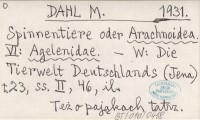 O
DAHL M. 1931.
Spinnentiere oder Arachnoidea.
VI: Agelenidae. - W: Die
Tierwelt Deutschlands (Jena)
t.23, ss. II, 46, il.
Też o pająkach tatrz.
BT/010/0418